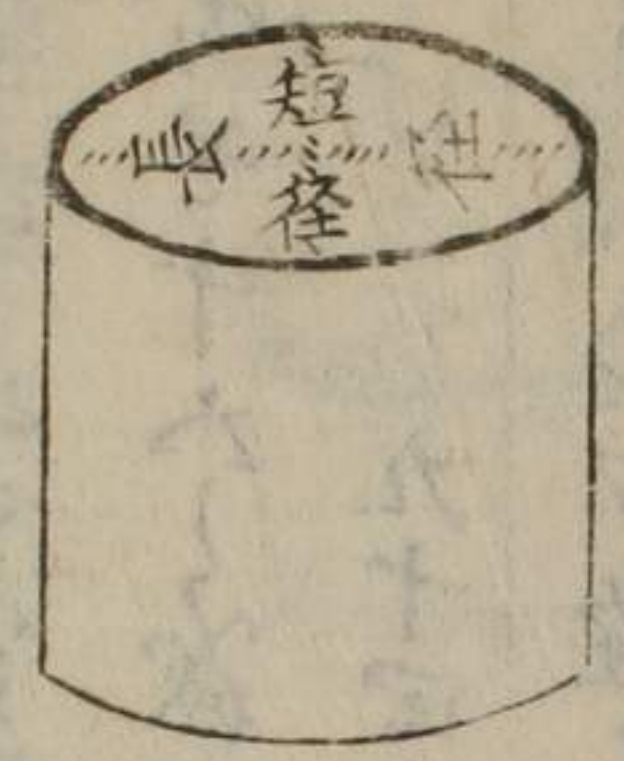 短径
長径